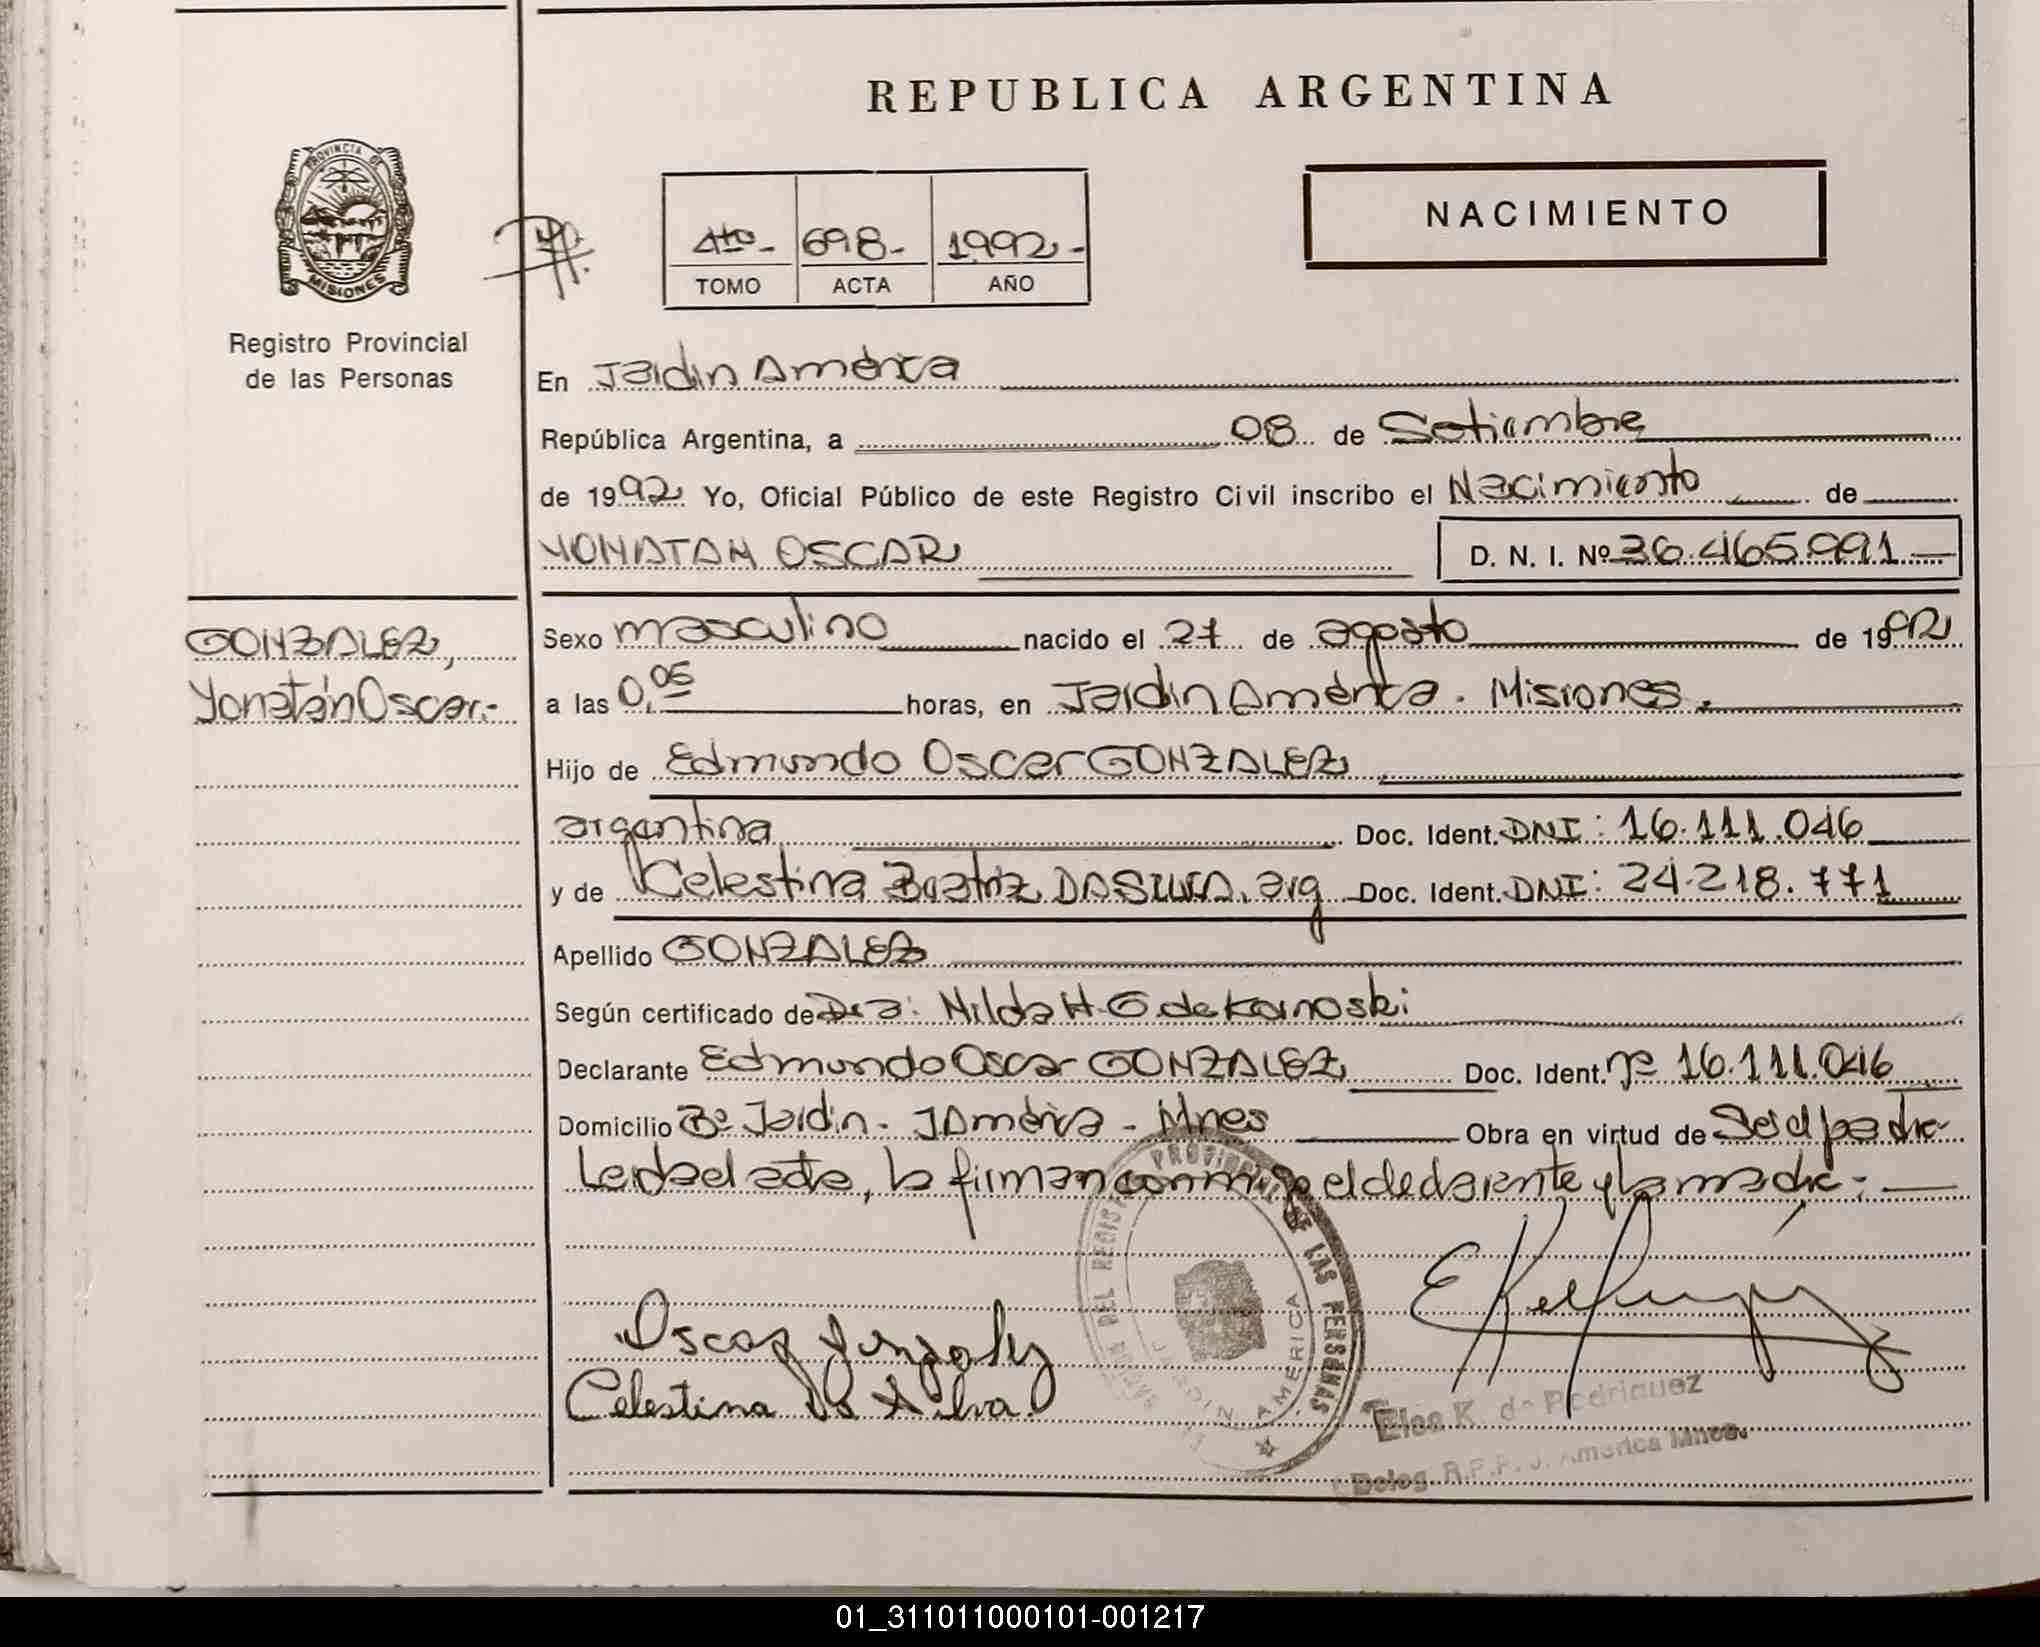 REPUBLICA ARGENTINA
PROVINCIA DE MISIONES
Registro Provincial
de las Personas
4to- 698- 1992-
TOMO ACTA AÑO
NACIMIENTO
En Jardin América
República Argentina, a 08 de Setiembre
de 1992 Yo, Oficial Público de este Registro Civil inscribo el Nacimiento de
YONATAN OSCAR D. N. I. Nº 36.465.991.—
GONZALEZ,
Yonatán Oscar.-
Sexo masculino nacido el 27 de agosto de 1992
a las 0,05 horas, en Jardin América. Misiones.
Hijo de Edmundo Oscar GONZALEZ
argentina Doc. Ident. DNI: 16.111.046
y de Celestina Beatriz DA SILVA, arg Doc. Ident. DNI: 24.218.771
Apellido GONZALEZ
Según certificado de Dra: Nilda H. G de Karnoski
Declarante Edmundo Oscar GONZALEZ Doc. Ident. nº 16.111.046
Domicilio Bº Jardin. J América - Mnes Obra en virtud de Ser el padre
Leida el acta, la firman conmigo el declarante y la madre.-
PROVINCIAL DE LAS PERSONAS
AMERICA
Oscar Gonzalez
Celestina Da Silva
Elsa K. de Rodriguez
Deleg. R.P.P. J. America Mnes.
01_311011000101-001217